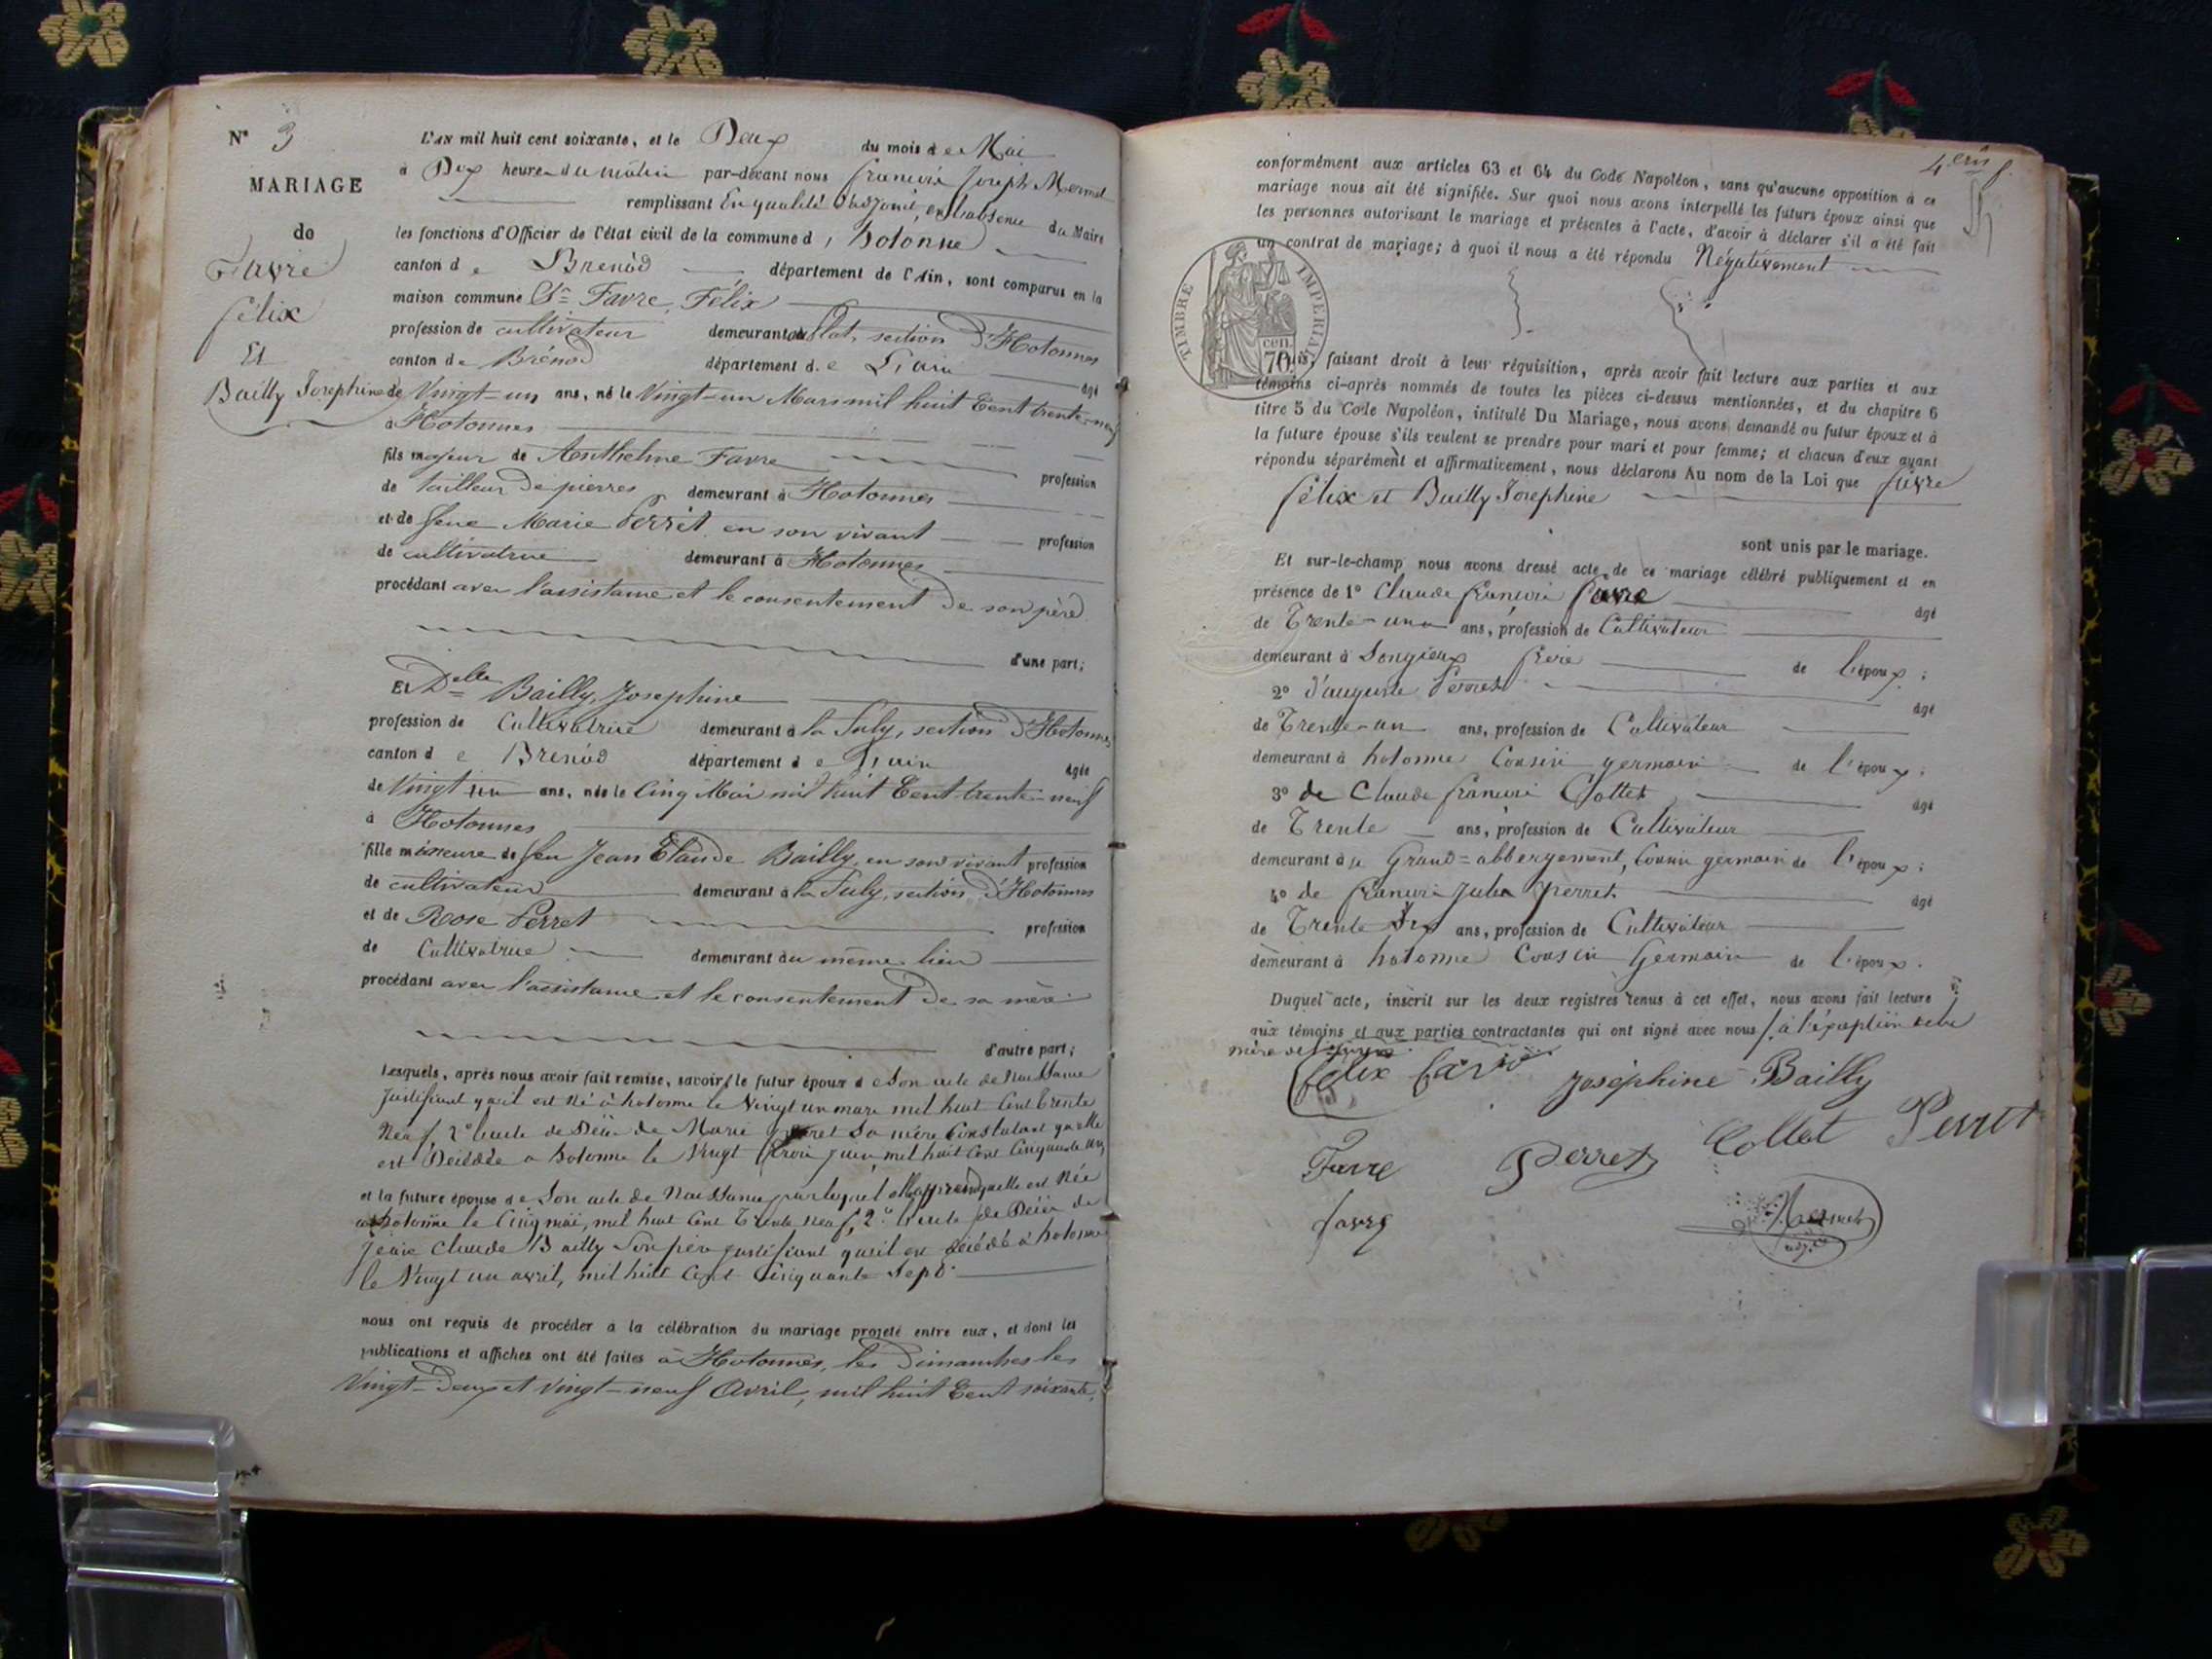 N° 3
MARIAGE
de
Favre
félix
Et
Bailly Josephine
L'AN mil huit cent soixante, et le Deux du mois de Mai
à Dix heures du matin par-devant nous françois Joseph Mermet
remplissant En qualité d'adjoint, en l'absence du Maire
les fonctions d'Officier de l'état civil de la commune d'hotonne
canton de Brenod département de l'Ain, sont comparus en la
maison commune Sr Favre, Félix
profession de cultivateur demeurant au section d'Hotonnes
canton de Brénod département de L'ain âgé
de Vingt-un ans, né le Vingt-un Mars mil huit Cent trente-neuf
à Hotonnes
fils majeur de Anthelme Favre profession
de tailleur de pierres demeurant à Hotonnes
et de feue Marie Perret en son vivant profession
de cultivatrice demeurant à Hotonnes
procédant avec l'assistance et le consentement de son père
d'une part;
Et Delle Bailly, Josephine
profession de Cultivatrice demeurant à la section d'Hotonnes
canton de Brenod département de L'ain âgée
de Vingt un ans, née le Cinq Mai mil huit Cent trente-neuf
à Hotonnes
fille mineure de feu Jean Claude Bailly, en son vivant profession
de cultivateur demeurant à la section d'Hotonnes
et de Rose Perret profession
de Cultivatrice demeurant au même lieu
procédant avec l'assistance et le consentement de sa mère
d'autre part;
Lesquels, après nous avoir fait remise, savoir, le futur époux de Son acte de Naissance
Justifiant qu'il est Né à hotonne le Vingt un mars mil huit Cent Trente
Neuf, 2° l'acte de Décès de Marie perret Sa mère Constatant qu'elle
est Décédée a hotonne le Vingt trois juin mil huit Cent Cinquante un,
et la future épouse de Son acte de Naissance par lequel elle apprend qu'elle est Née
a hotonne le Cinq mai, mil huit Cent Trente Neuf, 2° l'acte de Décès de
Jean Claude Bailly Son père justifiant qu'il est décédé à hotonne
le Vingt un avril, mil huit Cent Cinquante Sept
nous ont requis de procéder à la célébration du mariage projeté entre eux, et dont les
publications et affiches ont été faites à Hotonnes, les Dimanches les
Vingt-Deux et Vingt-neuf Avril, mil huit Cent soixante,
conformément aux articles 63 et 64 du Code Napoléon, sans qu'aucune opposition à ce
mariage nous ait été signifiée. Sur quoi nous avons interpellé les futurs époux ainsi que
les personnes autorisant le mariage et présentes à l'acte, d'avoir à déclarer s'il a été fait
un contrat de mariage; à quoi il nous a été répondu Négativement
TIMBRE IMPERIAL
70 cen.
Puis, faisant droit à leur réquisition, après avoir fait lecture aux parties et aux
témoins ci-après nommés de toutes les pièces ci-dessus mentionnées, et du chapitre 6
titre 5 du Code Napoléon, intitulé Du Mariage, nous avons demandé au futur époux et à
la future épouse s'ils veulent se prendre pour mari et pour femme; et chacun d'eux ayant
répondu séparément et affirmativement, nous déclarons Au nom de la Loi que favre
félix et Bailly Josephine
sont unis par le mariage.
Et sur-le-champ nous avons dressé acte de ce mariage célébré publiquement et en
présence de 1° Claude françois favre âgé
de Trente-un ans, profession de Cultivateur
demeurant à Songieux frère de l'époux;
2° d'auguste Perret âgé
de Trente-un ans, profession de Cultivateur
demeurant à hotonne Cousin germain de l'époux;
3° de Claude françois Collet âgé
de Trente ans, profession de Cultivateur
demeurant à Grand=abbergement, Cousin germain de l'époux;
4° de françois perret âgé
de Trente ans, profession de Cultivateur
demeurant à hotonne Cousin Germain de l'époux.
Duquel acte, inscrit sur les deux registres tenus à cet effet, nous avons fait lecture
aux témoins et aux parties contractantes qui ont signé avec nous, à l'exeption de la
mère de
félix favre Joséphine Bailly
Favre Perret Collet Perret
favre Mermet
adj.